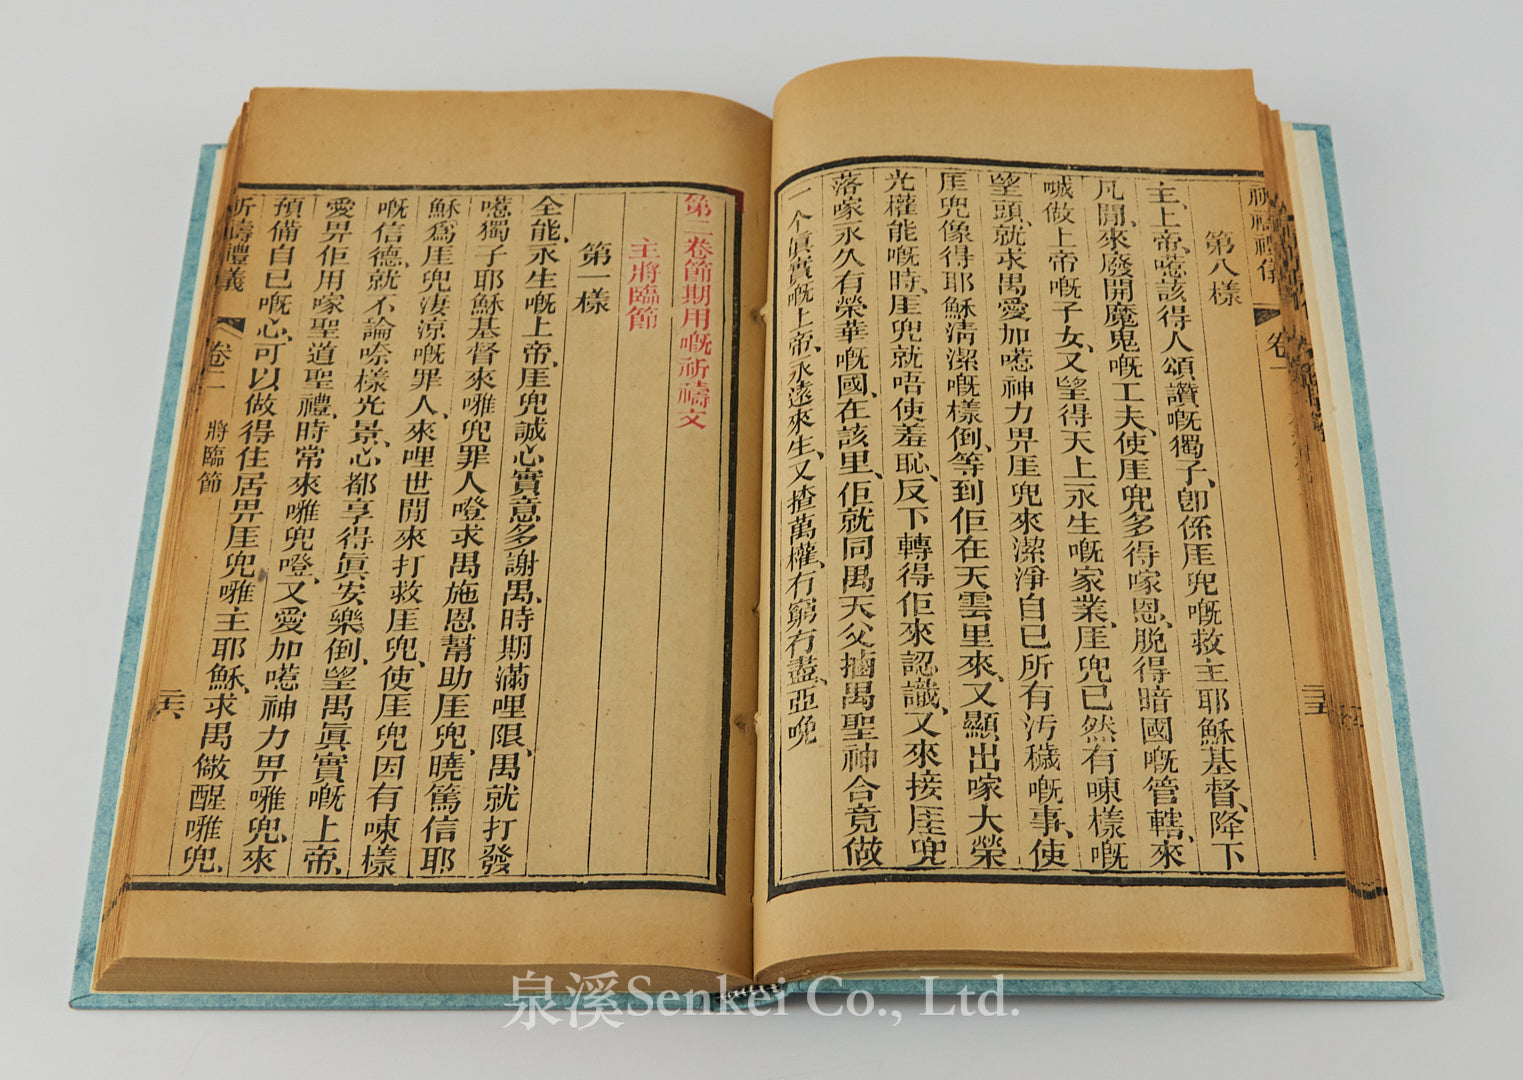 祈禱禮儀 卷一 二十五
第八樣
主、上帝、嗯該得人頌讚嘅獨子、卽係𠊎兜嘅救主耶穌基督、降下
凡間、來廢開魔鬼嘅工夫、使𠊎兜多得嚟恩、脫得暗國嘅管轄、來
喊做上帝嘅子女、又望得天上永生嘅家業、𠊎兜已然有㖫樣嘅
望頭、就求禺愛加嗯神力畀𠊎兜來潔淨自己所有污穢嘅事、使
𠊎兜像得耶穌淸潔嘅樣倒、等到佢在天雲里來、又顯出嚟大榮
光權能嘅時、𠊎兜就唔使羞恥、反下轉得佢來認識、又來接𠊎兜
落嚟永久有榮華嘅國、在該里、佢就同禺天父㩜禺聖神合竟做
一个眞實嘅上帝、永遠來生、又揸萬權、冇窮冇盡、亞𡃤
第二卷節期用嘅祈禱文
主將臨節
第一樣
全能、永生嘅上帝、𠊎兜誠心實意多謝禺、時期滿哩限、禺就打發
嗯獨子耶穌基督來㕵兜罪人噔、求禺施恩幫助𠊎兜、曉篤信耶
穌爲𠊎兜淒涼嘅罪人、來哩世間來打救𠊎兜、使𠊎兜因有㖫樣
嘅信德、就不論奈樣光景、心都享得眞安樂倒、望禺眞實嘅上帝、
愛畀佢用嚟聖道聖禮、時常來㕵兜噔、又愛加嗯神力畀㕵兜、來
預備自己嘅心、可以做得住居畀𠊎兜㕵主耶穌、求禺儆醒㕵兜、
祈禱禮儀 卷二 將臨節 二十六
泉溪Senkei Co., Ltd.